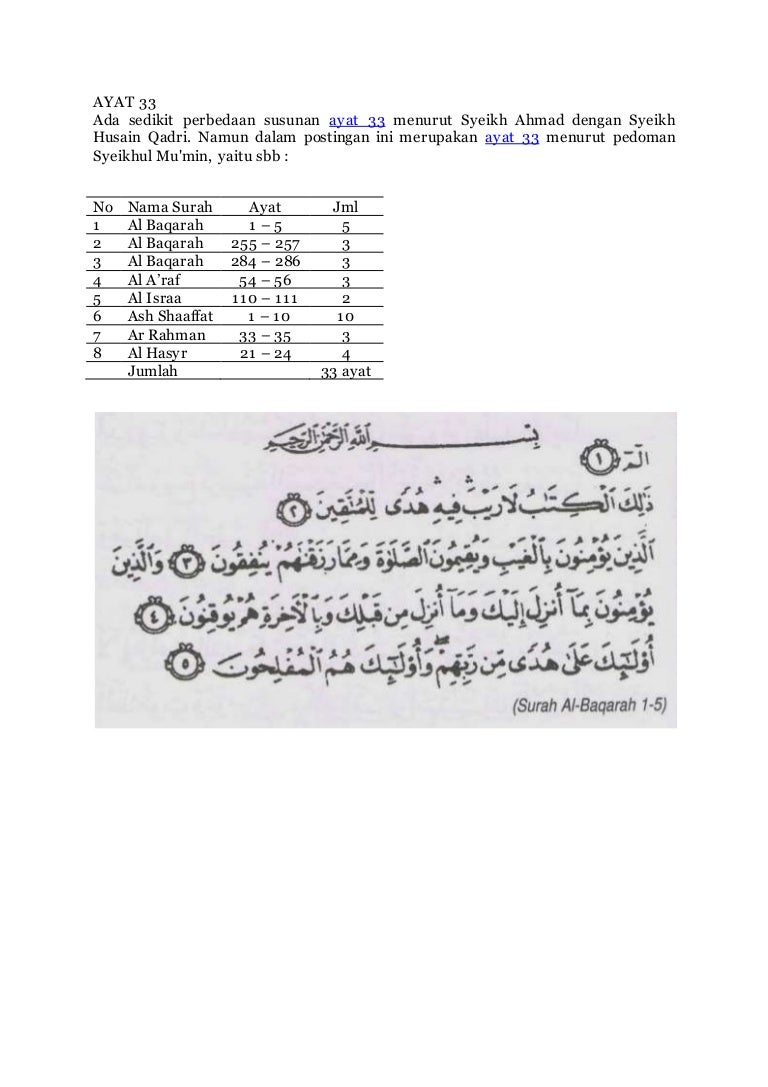 AYAT 33
Ada sedikit perbedaan susunan ayat 33 menurut Syeikh Ahmad dengan Syeikh
Husain Qadri. Namun dalam postingan ini merupakan ayat 33 menurut pedoman
Syeikhul Mu'min, yaitu sbb :
No Nama Surah Ayat Jml
1 Al Baqarah 1 – 5 5
2 Al Baqarah 255 – 257 3
3 Al Baqarah 284 – 286 3
4 Al A’raf 54 – 56 3
5 Al Israa 110 – 111 2
6 Ash Shaaffat 1 – 10 10
7 Ar Rahman 33 – 35 3
8 Al Hasyr 21 – 24 4
Jumlah 33 ayat
بِسْمِ اللَّهِ الرَّحْمَٰنِ الرَّحِيمِ
الٓمٓ ١
ذَٰلِكَ ٱلْكِتَٰبُ لَا رَيْبَ ۛ فِيهِ ۛ هُدًى لِّلْمُتَّقِينَ ٢
ٱلَّذِينَ يُؤْمِنُونَ بِٱلْغَيْبِ وَيُقِيمُونَ ٱلصَّلَوٰةَ وَمِمَّا رَزَقْنَٰهُمْ يُنفِقُونَ ٣ وَٱلَّذِينَ
يُؤْمِنُونَ بِمَآ أُنزِلَ إِلَيْكَ وَمَآ أُنزِلَ مِن قَبْلِكَ وَبِٱلْأَخِرَةِ هُمْ يُوقِنُونَ ٤
أُو۟لَٰٓئِكَ عَلَىٰ هُدًى مِّن رَّبِّهِمْ ۖ وَأُو۟لَٰٓئِكَ هُمُ ٱلْمُفْلِحُونَ ٥
(Surah Al-Baqarah 1-5)